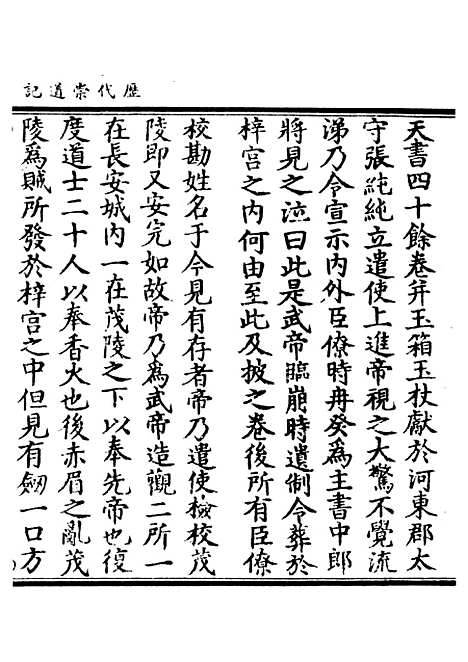 歷代崇道記
天書四十餘卷并玉箱玉杖獻於河東郡太
守張純純立遣使上進帝視之大驚不覺流
涕乃令宣示內外臣僚時冉癸為主書中郎
將見之泣曰此是武帝臨崩時遺制令葬於
梓宮之內何由至此及披之卷後所有臣僚
校勘姓名于今見有存者帝乃遣使檢校茂
陵即又安完如故帝乃為武帝造觀二所一
在長安城內一在茂陵之下以奉先帝也復
度道士二十人以奉香火也後赤眉之亂茂
陵為賊所發於梓宮之中但見有劒一口方